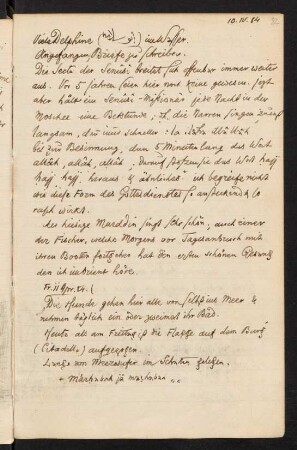 10.IV.84
Viele Delphine (أبو سلامة) im Wasser.
Angefangen Briefe zu schreiben.
Die Secte der Senûsi breitet sich offenbar immer weiter
aus. Vor 5 Jahren seien hier noch keine gewesen. jetzt
aber hält ein Senûsi-Missionär jede Nacht in der
Moschee eine Betstunde, d. h. die Narren singen zuerst
langsam, dann immer schneller: la ilâh illallâh
bis zur Besinnung, dann 5 Minuten lang das Wort
allâh, allâh, allâh, das Wort hajj
hajj hajj heraus & ähnliches. ich begreife nicht
wie diese Form des Gottesdienstes so ansteckend & so
rasch wirkt.
Der hiesige singt sehr schön, auch einer
der Fischer, welche Morgens vor Tagesanbruch mit
ihren Booten fortgehen hat den ersten schönen Gesang
den ich im hörte.
Fr. 11 Apr. 84.
Die Hunde gehen hier alle von selbst ins Meer &
nehmen täglich ein oder zweimal ihr Bad.
Heute als am Freitag ist die Flagge auf dem Burg
(Citadelle) aufgezogen.
Lange am Meeresufer im Schatten gelegen.